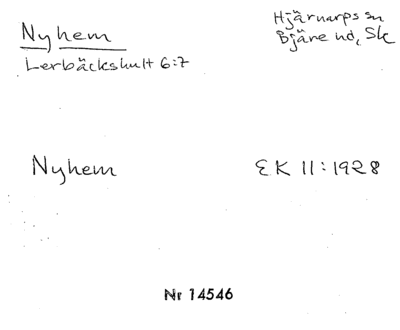 Nyhem
Lerbäckshult 6:7
Hjärnarps sn
Bjäre hd, Sk
Nyhem
EK 11:1928
Nr 14546